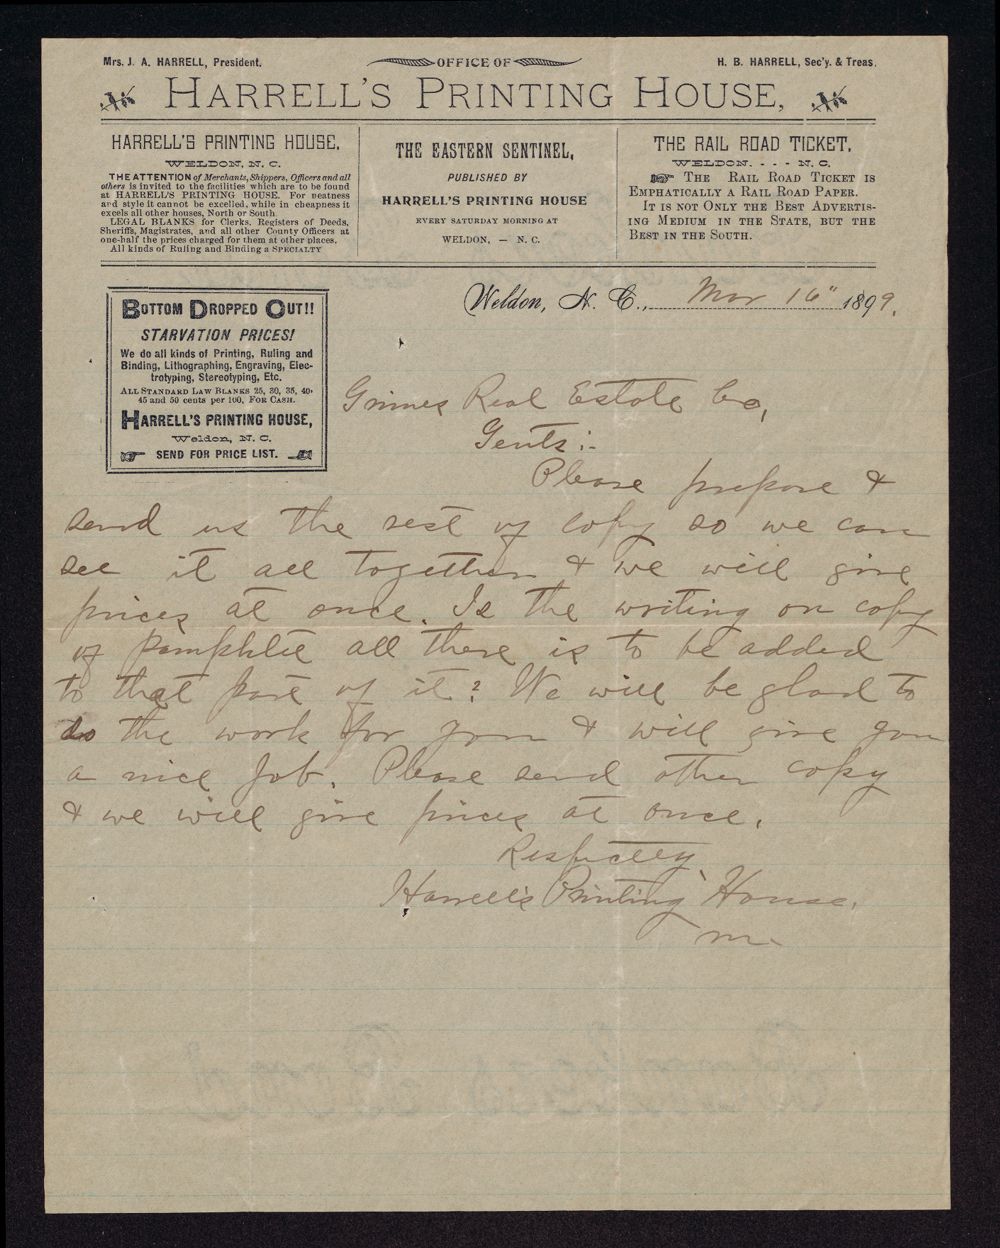 Mrs. J. A. HARRELL, President.
OFFICE OF
H. B. HARRELL, Sec'y. & Treas.
HARRELL'S PRINTING HOUSE,
HARRELL'S PRINTING HOUSE,
WELDON, N. C.
THE ATTENTION of Merchants, Shippers, Officers and all
others is invited to the facilities which are to be found
at HARRELL'S PRINTING HOUSE. For neatness
and style it cannot be excelled, while in cheapness it
excels all other houses, North or South
LEGAL BLANKS for Clerks, Registers of Deeds,
Sheriffs, Magistrates, and all other County Officers at
one-half the prices charged for them at other places.
All kinds of Ruling and Binding a SPECIALTY
THE EASTERN SENTINEL,
PUBLISHED BY
HARRELL'S PRINTING HOUSE
EVERY SATURDAY MORNING AT
WELDON, — N. C.
THE RAIL ROAD TICKET,
WELDON. - - - N. C.
THE RAIL ROAD TICKET IS
EMPHATICALLY A RAIL ROAD PAPER.
IT IS NOT ONLY THE BEST ADVERTIS-
ING MEDIUM IN THE STATE, BUT THE
BEST IN THE SOUTH.
Weldon, N. C., Mar 16" 1899.
BOTTOM DROPPED OUT!!
STARVATION PRICES!
We do all kinds of Printing, Ruling and
Binding, Lithographing, Engraving, Elec-
trotyping, Stereotyping, Etc.
ALL STANDARD LAW BLANKS 25, 30, 35, 40,
45 and 50 cents per 100, FOR CASH.
HARRELL'S PRINTING HOUSE,
Weldon, N. C.
SEND FOR PRICE LIST.
Grimes Real Estate Co,
Gents:-
Please prepare &
send us the rest of copy so we can
see it all together & we will give
prices at once. Is the writing on copy
of pamphlet all there is to be added
to that part of it? We will be glad to
do the work for you & will give you
a nice job. Please send other copy
& we will give prices at once.
Respectfly,
Harrell's Printing House.
m.